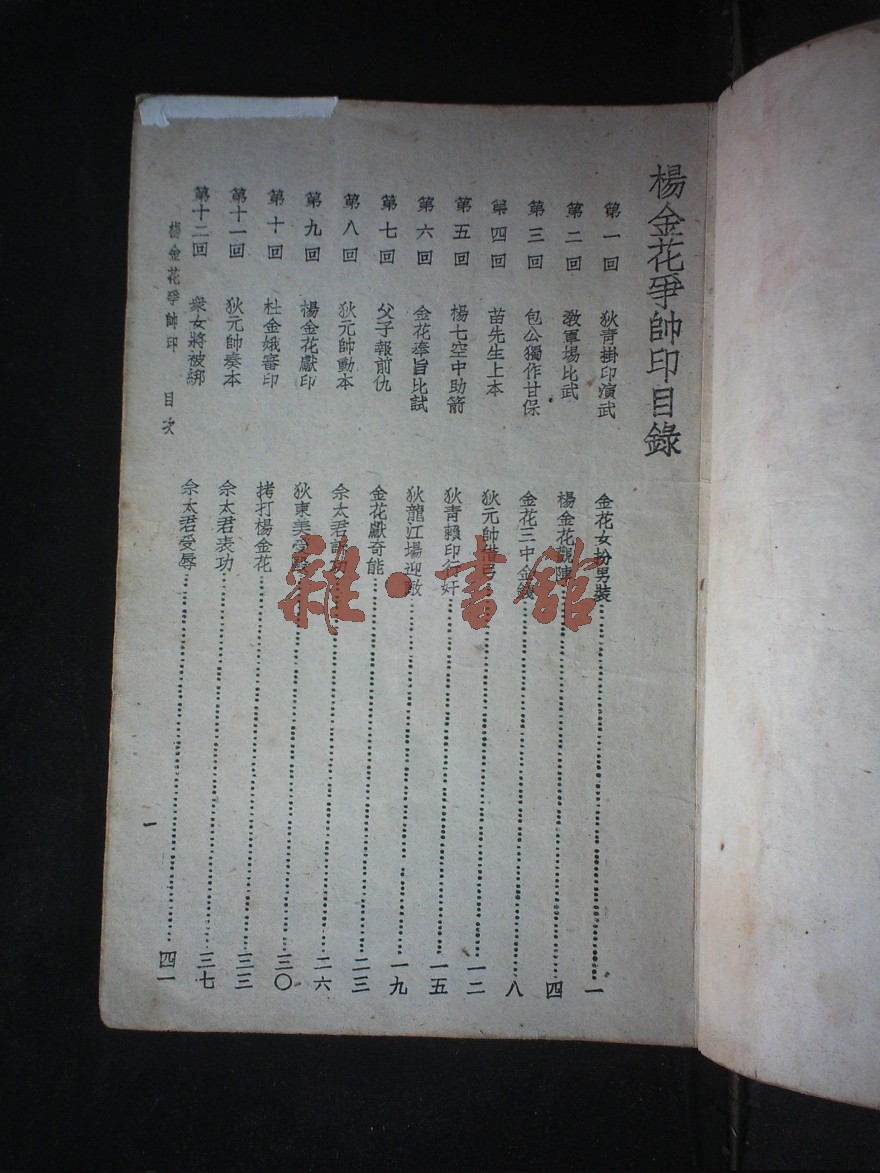 楊金花爭帥印目錄
第一回 狄青掛印演武 金花女扮男裝 一
第二回 教軍場比武 楊金花觀陣 四
第三回 包公獨作甘保 金花三中金錢 八
第四回 苗先生上本 狄元帥借弓 一二
第五回 楊七空中助箭 狄青賴印行奸 一五
第六回 金花奉旨比試 狄龍江場迎敵 一九
第七回 父子報前仇 金花獻奇能 二三
第八回 狄元帥動本 佘太君訴功 二六
第九回 楊金花獻印 狄東美受 三〇
第十回 杜金娥審印 拷打楊金花 三三
第十一回 狄元帥奏本 佘太君表功 三七
第十二回 衆女將被綁 佘太君受辱 四一
楊金花爭帥印 目次
一
雜·書館